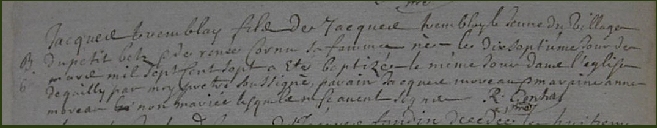 Jacques tremblay fils de Jacques tremblay le jeune du village
du petit betz & de renee cornu sa femme né le dixseptiéme jour de
mars mil sept cent sept a été baptizé le même jour dans l'eglise
d'equilly par moy prêtre soussigné, parain Jacques moreau & maraine anne
moreau non mariée lesquels ne sçavent signer